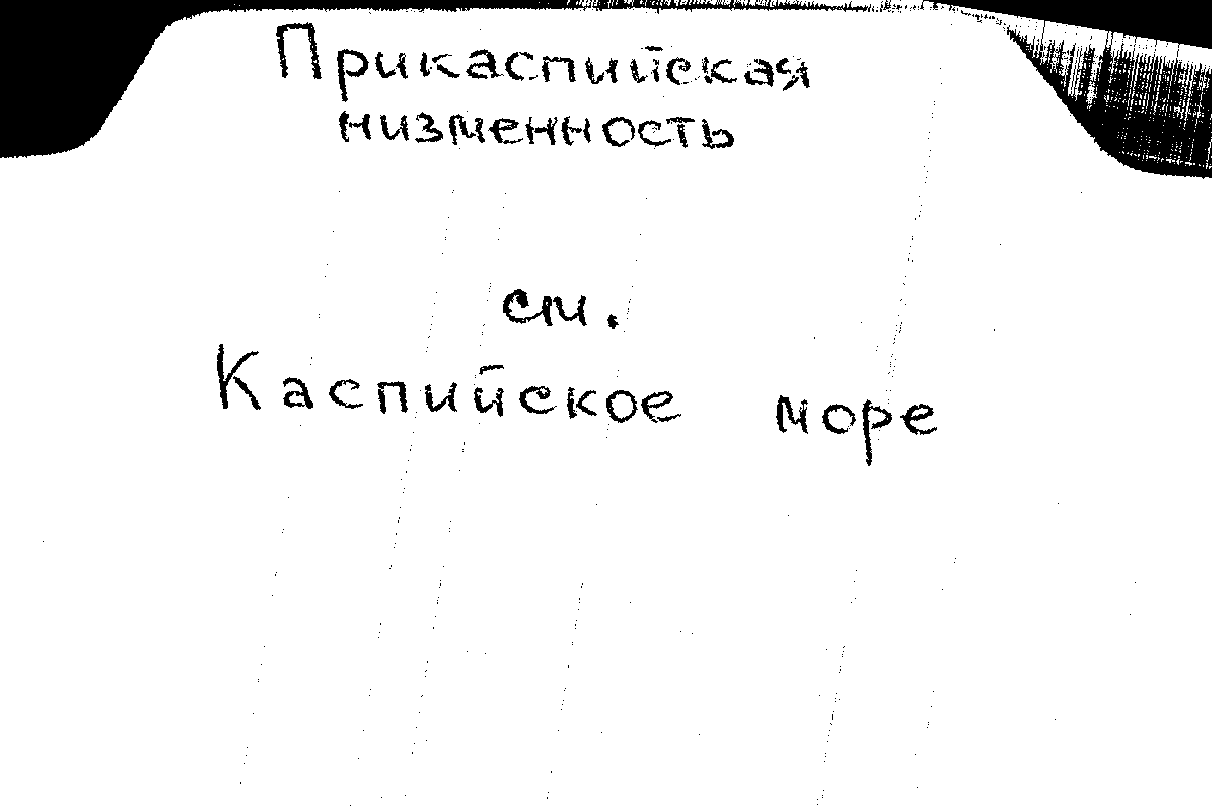 Прикаспийская
низменность
см.
Каспийское море